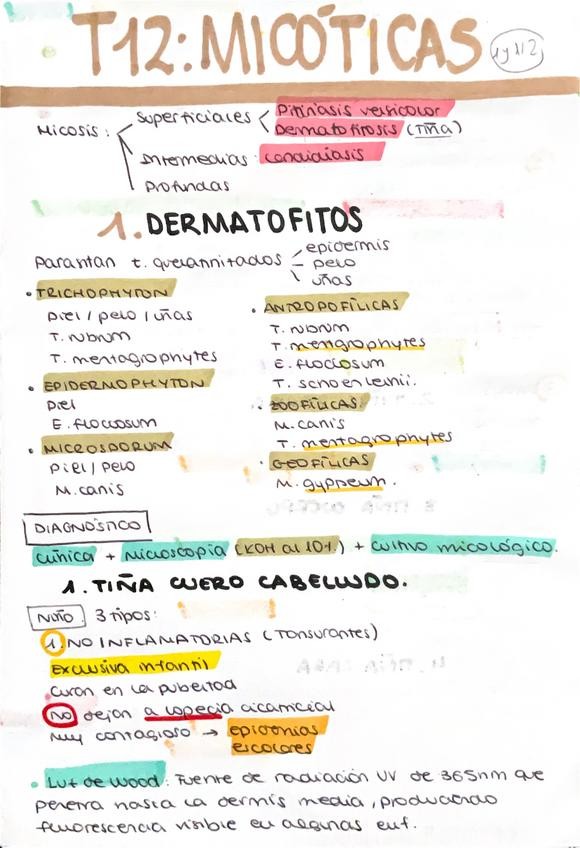 T12: MICÓTICAS
Micosis: Superficiales Pitiriasis versicolor
Dermatofitosis (TIÑA)
Intermedias: candidiasis
Profundas
1. DERMATOFITOS
Parasitan t. queratinizados epidermis
pelo
uñas
• TRICHOPHYTON
Piel / pelo / uñas
T. rubrum
T. mentagrophytes
• EPIDERMOPHYTON
Piel
E. floccosum
• MICROSPORUM
Piel / Pelo
M. canis
• ANTROPOFÍLICAS
T. rubrum
T. mentagrophytes
E. flociosum
T. schoenleinii.
• ZOOFÍLICAS
M. canis
T. mentagrophytes
• GEOFÍLICAS
M. gypseum.
DIAGNÓSTICO
Clínica + Microscopia (KOH al 10%) + cultivo micológico.
1. TIÑA CUERO CABELLUDO.
NIÑO 3 tipos:
1. NO INFLAMATORIAS (Tonsurantes)
Exclusiva infantil
Curan en la pubertad
NO dejan alopecia cicatricial
Muy contagioso → epidemias
escolares
• Luz de Wood: Fuente de radiación UV de 365nm que
penetra hasta la dermis media, produciendo
fluorescencia visible en algunas enf.